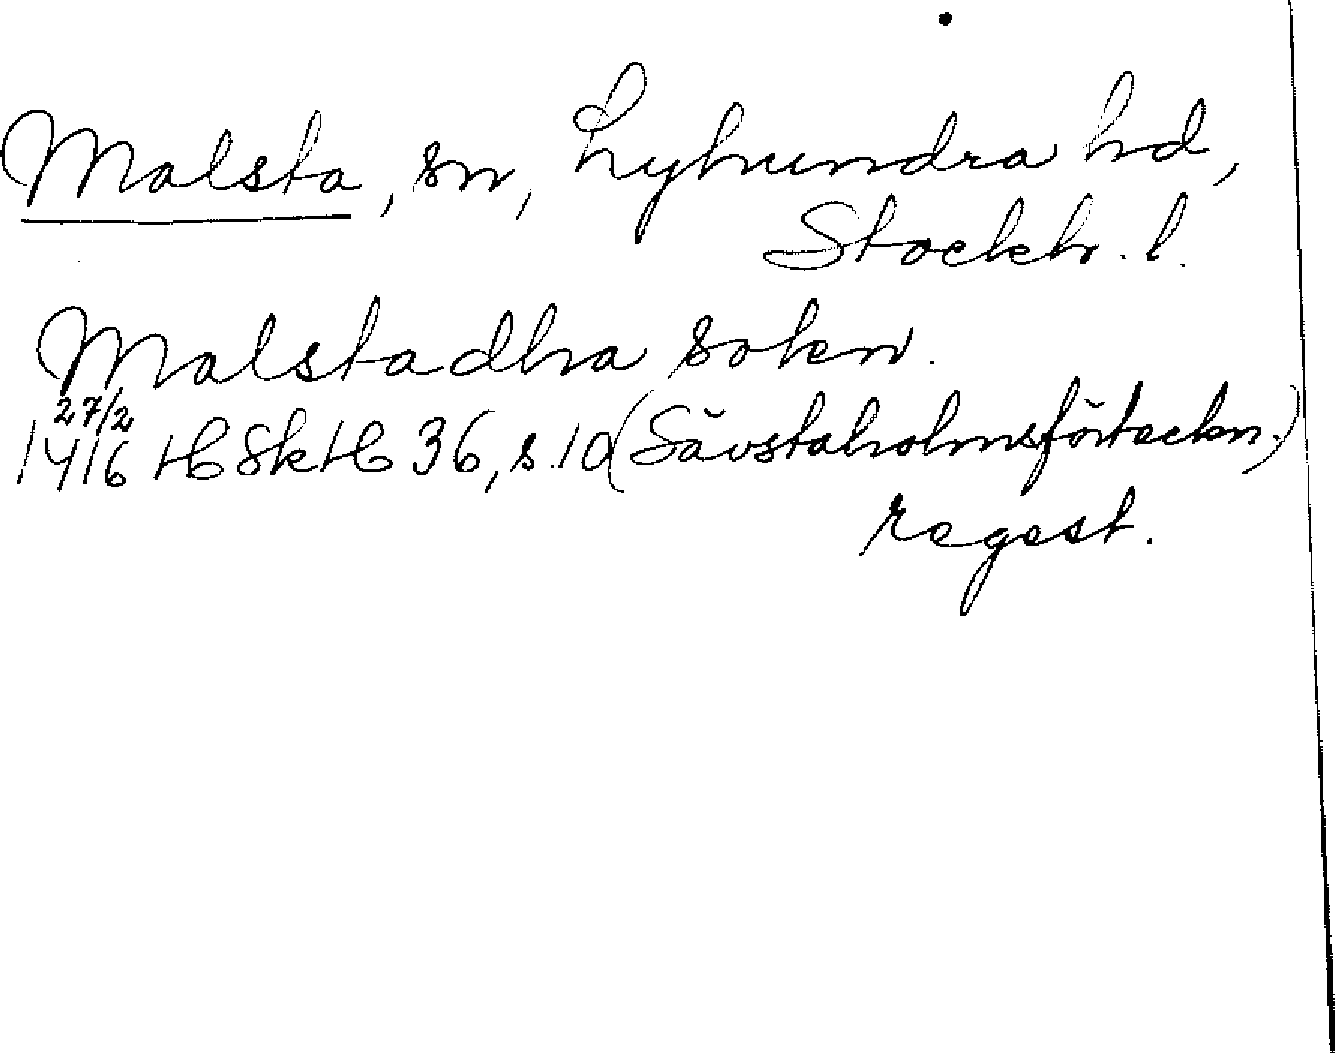 Malsta, sn, Lyhundra hd,
Stockh. l.
Malstadha sokn.
27/2
1416 HSkH 36, s. 10 (Sävstaholmsförteckn.)
regest.